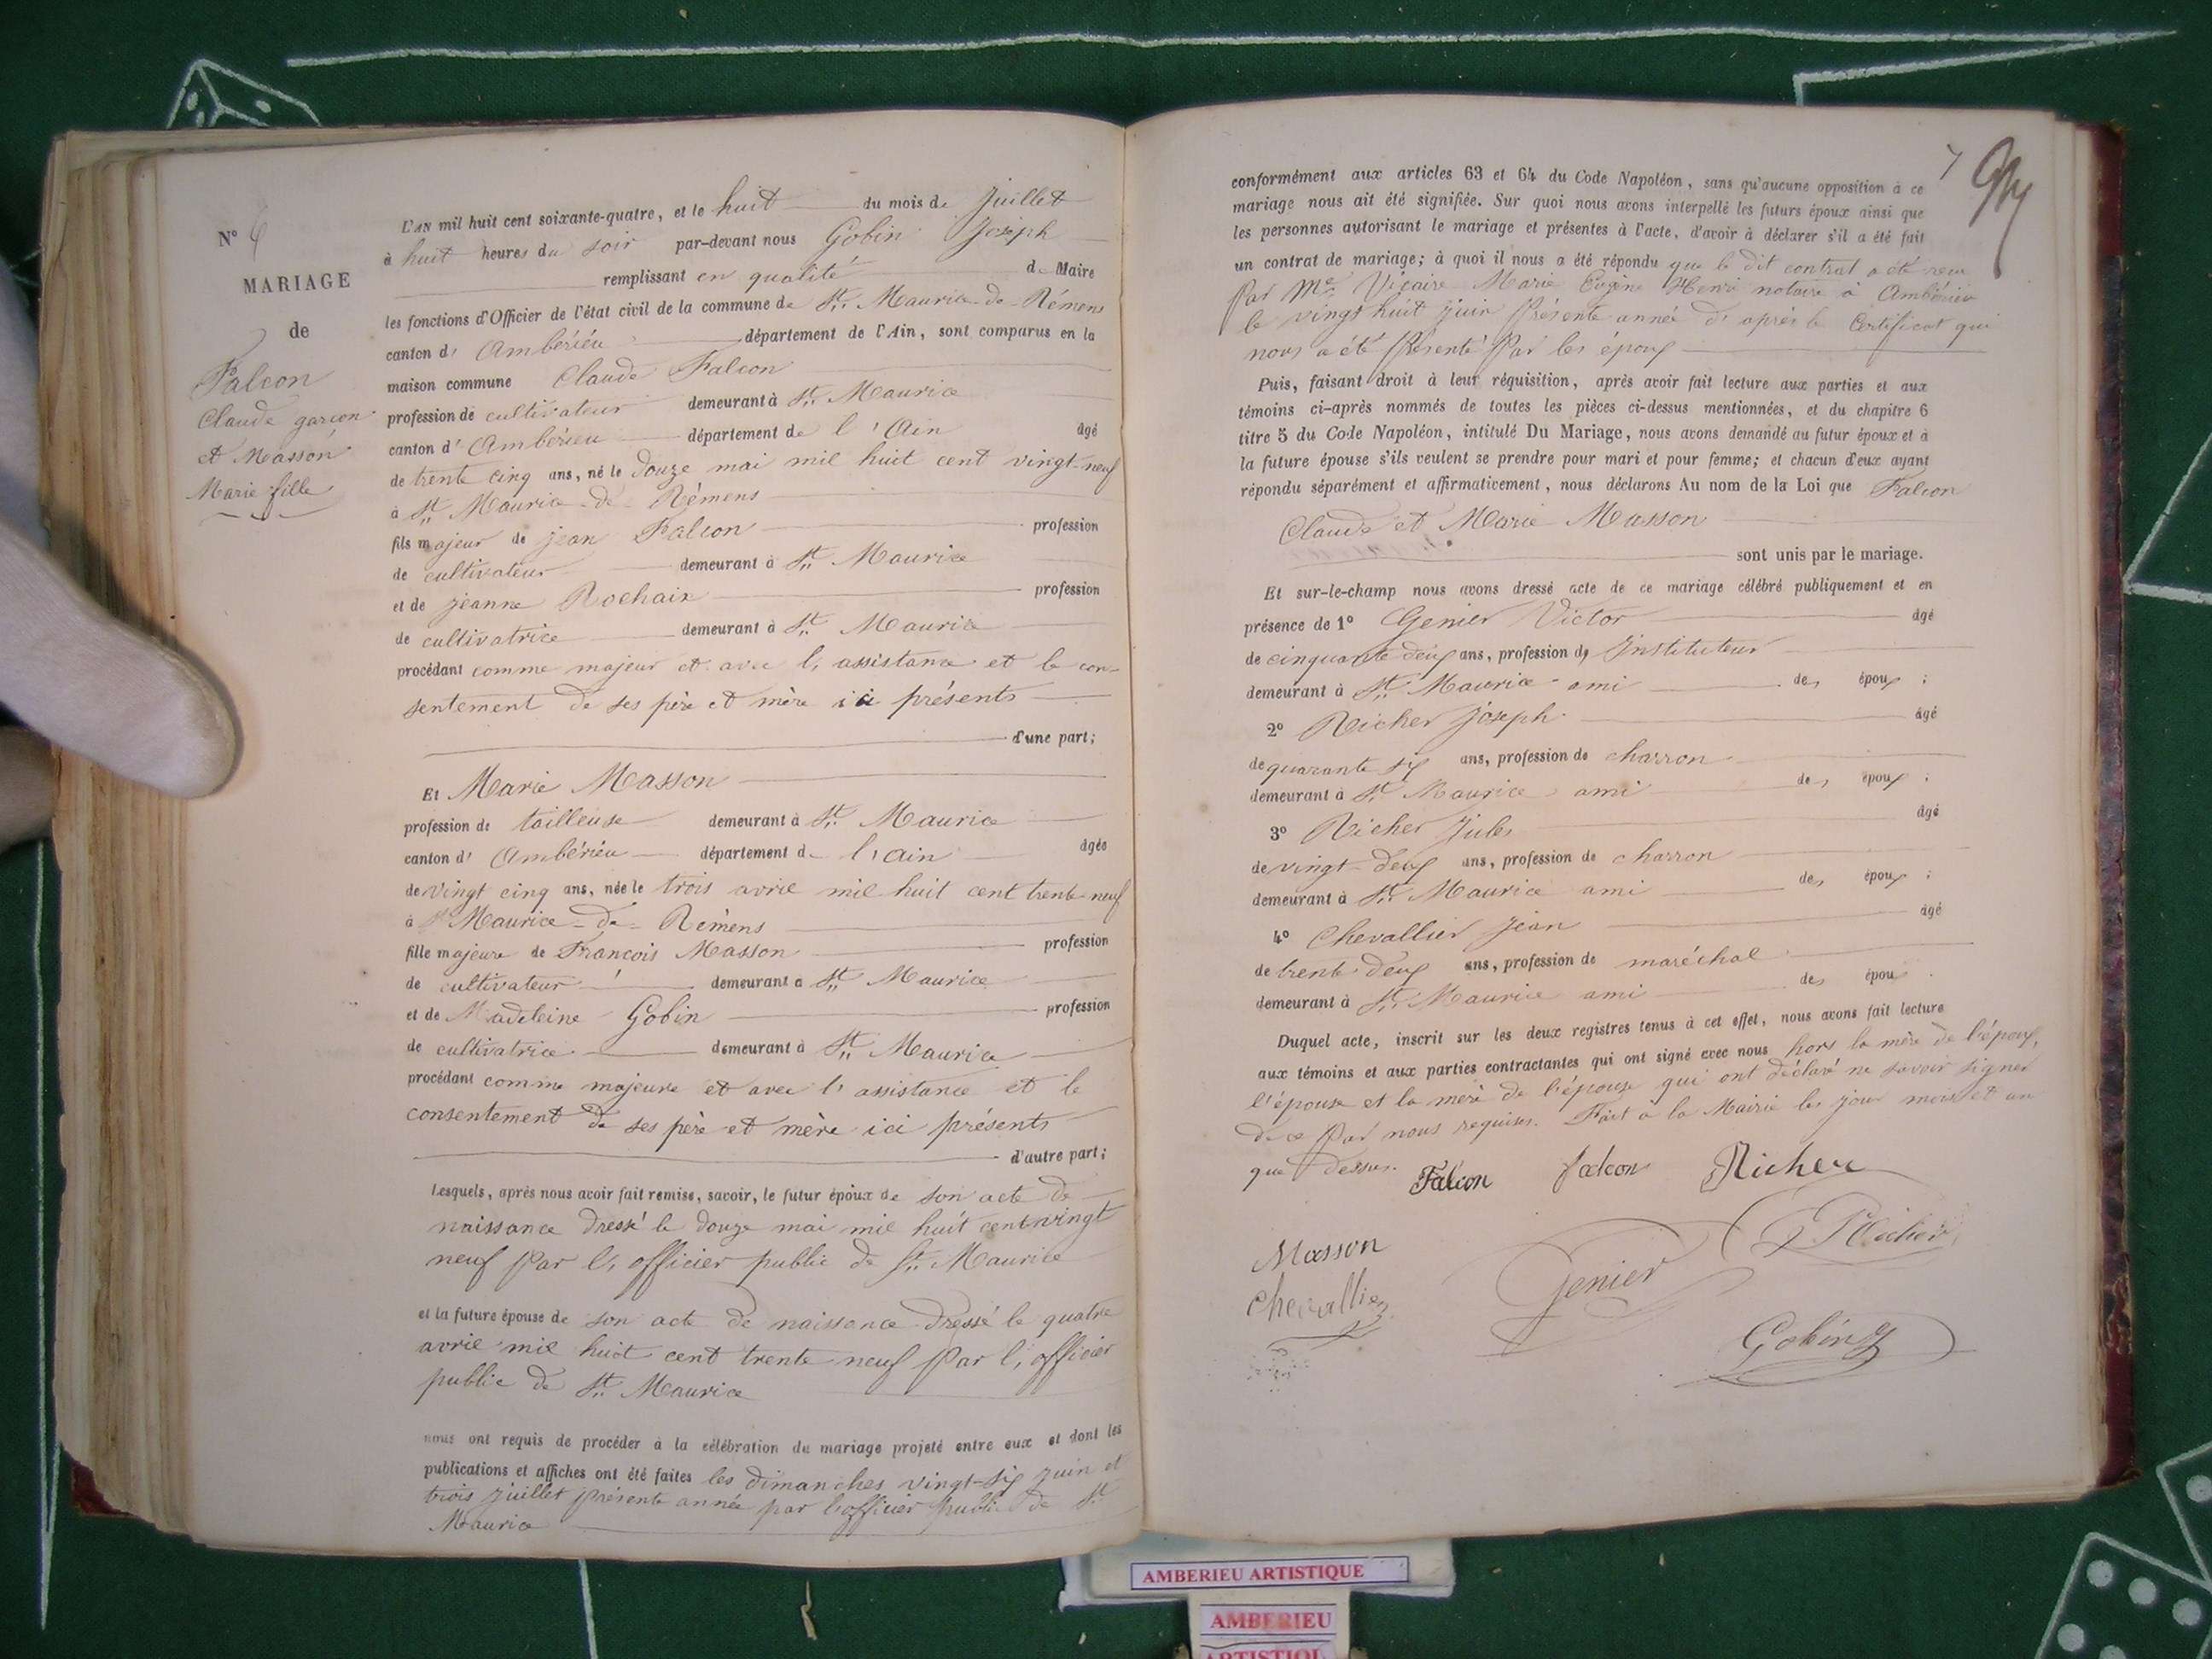 N° 6
MARIAGE
de
Falcon
Claude garçon
et Masson
Marie fille
L'AN mil huit cent soixante-quatre, et le huit du mois de Juillet
à huit heures du soir par-devant nous Gobin Joseph
remplissant en qualité de Maire
les fonctions d'Officier de l'état civil de la commune de St. Maurice-de-Rémens
canton d' Ambérieu département de l'Ain, sont comparus en la
maison commune Claude Falcon
profession de cultivateur demeurant à St. Maurice
canton d' Ambérieu département de l'Ain âgé
de trente cinq ans, né le douze mai mil huit cent vingt-neuf
à St. Maurice-de-Rémens
fils majeur de jean Falcon profession
de cultivateur demeurant à St. Maurice
et de jeanne Rochaix profession
de cultivatrice demeurant à St. Maurice
procédant comme majeur et avec l'assistance et le con-
sentement de ses père et mère ici présents
d'une part;
Et Marie Masson
profession de tailleuse demeurant à St. Maurice
canton d' Ambérieu département de l'ain âgée
de vingt cinq ans, née le trois avril mil huit cent trente-neuf
à St Maurice-de-Rémens
fille majeure de François Masson profession
de cultivateur demeurant à St. Maurice
et de Madeleine Gobin profession
de cultivatrice demeurant à St. Maurice
procédant comme majeure et avec l'assistance et le
consentement de ses père et mère ici présents
d'autre part;
Lesquels, après nous avoir fait remise, savoir, le futur époux de son acte de
naissance dressé le douze mai mil huit cent vingt
neuf par l'officier public de St. Maurice
et la future épouse de son acte de naissance dressé le quatre
avril mil huit cent trente neuf par l'officier
public de St. Maurice
nous ont requis de procéder à la célébration du mariage projeté entre eux et dont les
publications et affiches ont été faites les dimanches vingt-six juin et
trois juillet présente année par l'officier public de St.
Maurice
7
conformément aux articles 63 et 64 du Code Napoléon, sans qu'aucune opposition à ce
mariage nous ait été signifiée. Sur quoi nous avons interpellé les futurs époux ainsi que
les personnes autorisant le mariage et présentes à l'acte, d'avoir à déclarer s'il a été fait
un contrat de mariage; à quoi il nous a été répondu que le dit contrat a été reçu
par Me. Vicaire Marie Eugène Henri notaire à Ambérieu
le vingt huit juin présente année d'après le Certificat qui
nous a été présenté par les époux
Puis, faisant droit à leur réquisition, après avoir fait lecture aux parties et aux
témoins ci-après nommés de toutes les pièces ci-dessus mentionnées, et du chapitre 6
titre 5 du Code Napoléon, intitulé Du Mariage, nous avons demandé au futur époux et à
la future épouse s'ils veulent se prendre pour mari et pour femme; et chacun d'eux ayant
répondu séparément et affirmativement, nous déclarons Au nom de la Loi que Falcon
Claude et Marie Masson
sont unis par le mariage.
Et sur-le-champ nous avons dressé acte de ce mariage célébré publiquement et en
présence de 1° Genier Victor âgé
de cinquante deux ans, profession d' Instituteur
demeurant à St. Maurice ami des époux;
2° Richer Joseph âgé
de quarante six ans, profession de charron
demeurant à St. Maurice ami des époux;
3° Richer Jules âgé
de vingt-deux ans, profession de charron
demeurant à St. Maurice ami des époux;
4° Chevallier Jean âgé
de trente deux ans, profession de maréchal
demeurant à St. Maurice ami des époux.
Duquel acte, inscrit sur les deux registres tenus à cet effet, nous avons fait lecture
aux témoins et aux parties contractantes qui ont signé avec nous hors la mère de l'époux,
l'épouse et la mère de l'épouse qui ont déclaré ne savoir signer
de ce par nous requises. Fait à la Mairie les jour mois et an
que dessus.
Falcon falcon Richer
Masson Genier J Richer
Chevallier
Gobin J
AMBERIEU ARTISTIQUE
AMBERIEU